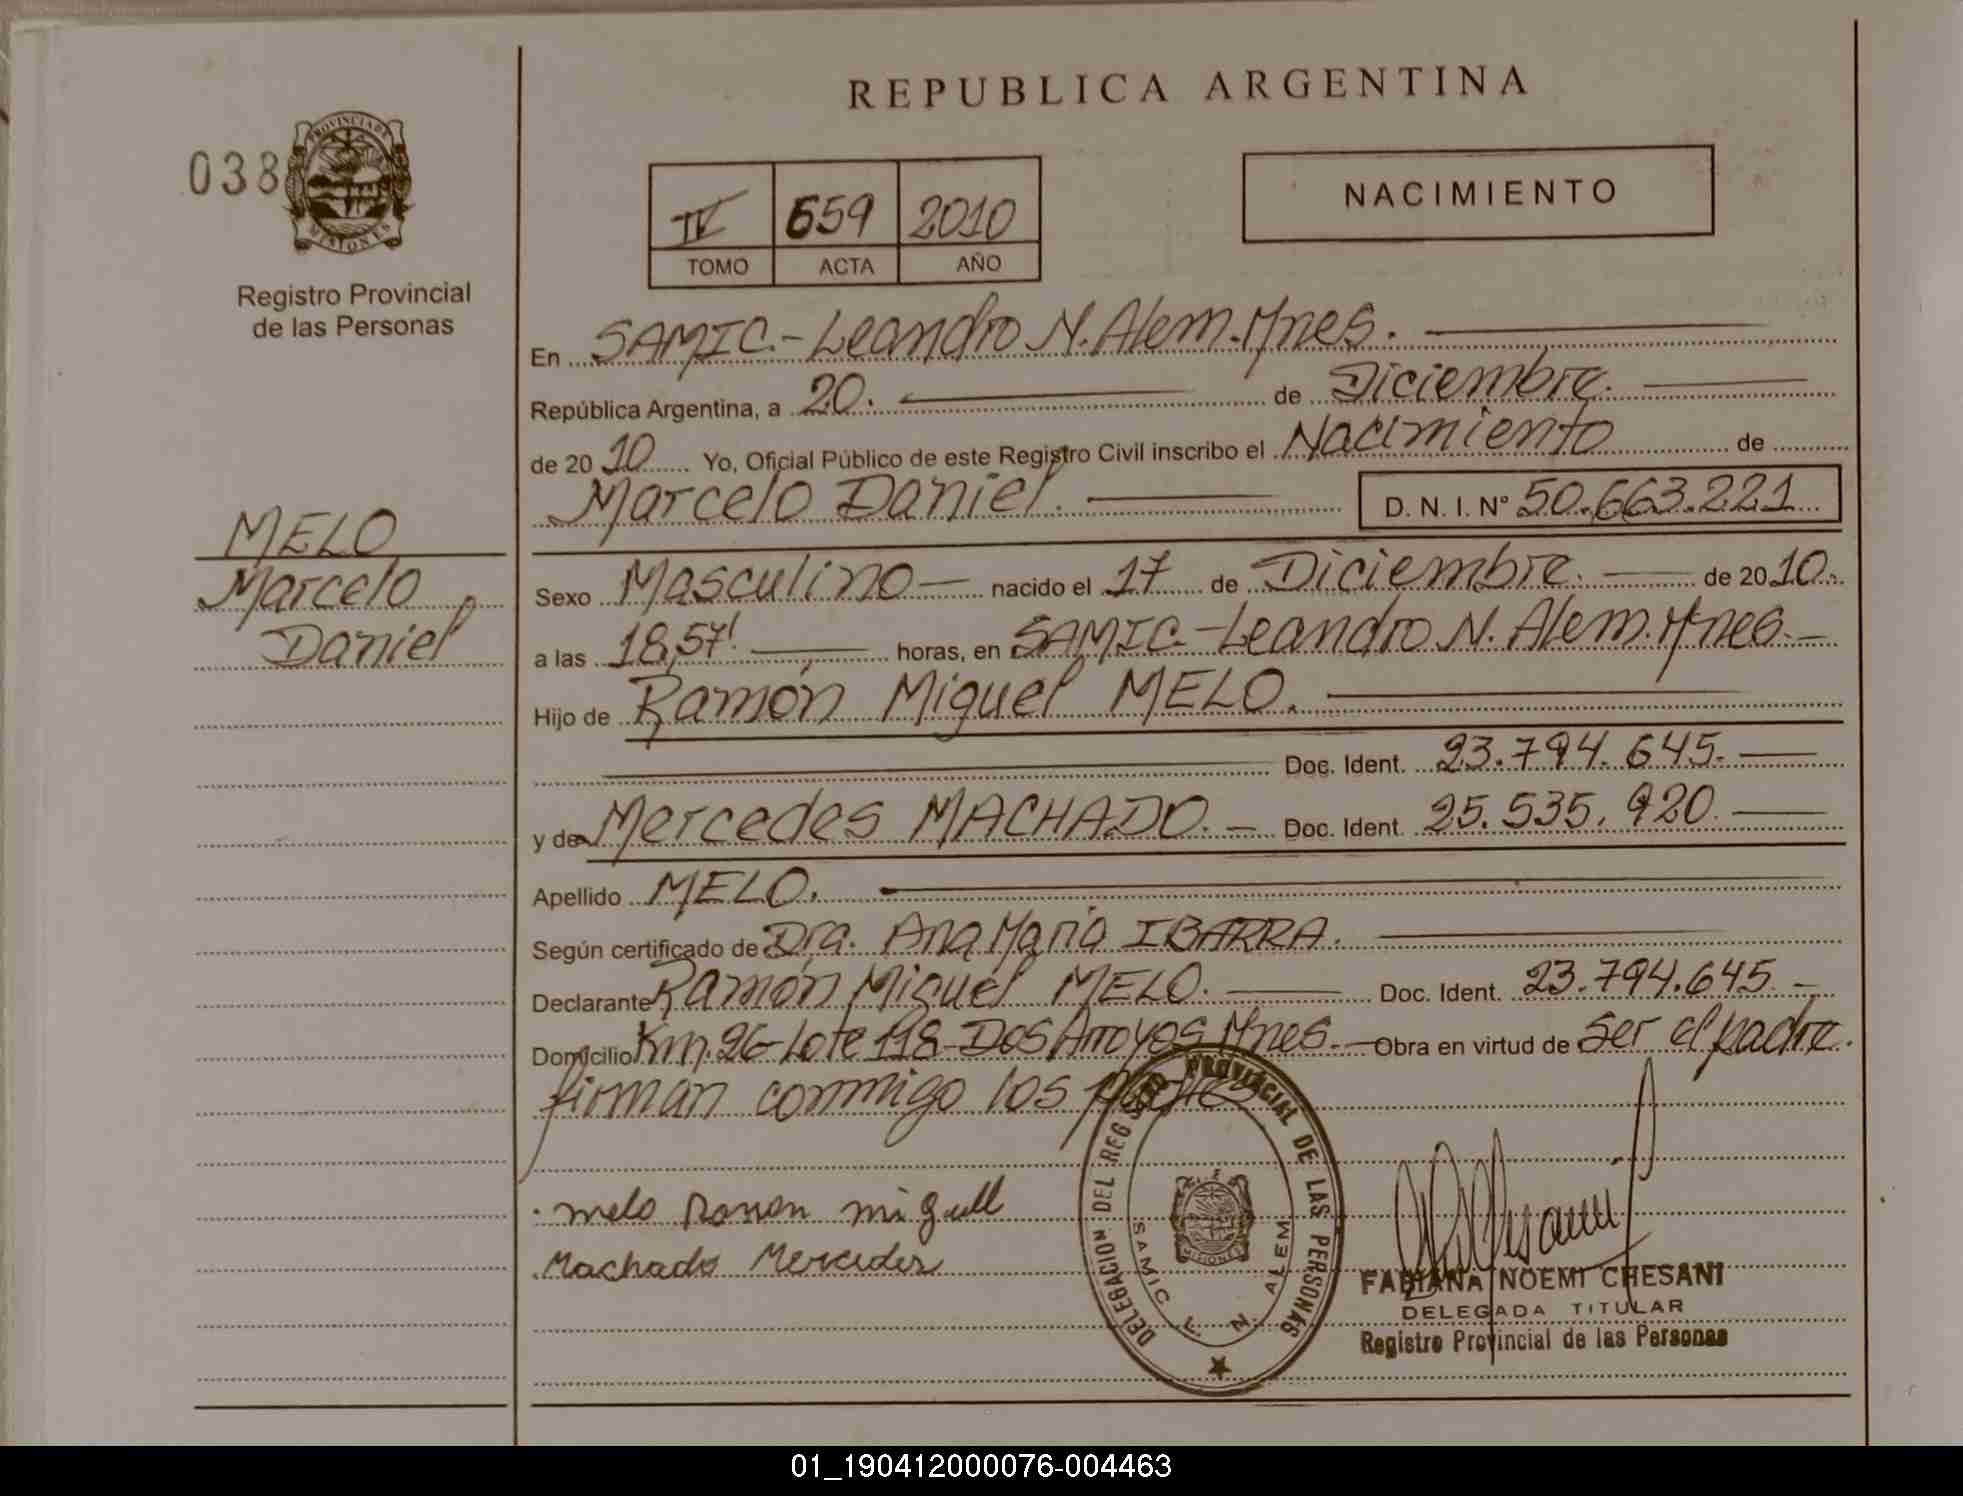 REPUBLICA ARGENTINA
038
PROVINCIA DE
MISIONES
Registro Provincial
de las Personas
IV 659 2010
TOMO ACTA AÑO
NACIMIENTO
En SAMIC.-Leandro N. Alem. Mnes.
República Argentina, a 20. de Diciembre.
de 2010 Yo, Oficial Público de este Registro Civil inscribo el Nacimiento de
Marcelo Daniel. D. N. I. Nº 50.663.221
MELO
Marcelo
Daniel
Sexo Masculino — nacido el 17 de Diciembre. de 2010.
a las 18,57' horas, en SAMIC.-Leandro N. Alem. Mnes.-
Hijo de Ramón Miguel MELO.
Doc. Ident. 23.794.645.-
y de Mercedes MACHADO. - Doc. Ident. 25.535.920.
Apellido MELO.
Según certificado de Dra. Ana María IBARRA.
Declarante Ramón Miguel MELO. Doc. Ident. 23.794.645.-
Domicilio Km. 26-Lote 118-Dos Arroyos Mnes.- Obra en virtud de ser el padre.
firman conmigo los padres
melo Ramon miguell
Machado Mercedes
DELEGACION DEL REGISTRO PROVINCIAL DE LAS PERSONAS
SAMIC L. N. ALEM
MISIONES
FABIANA NOEMI CHESANI
DELEGADA TITULAR
Registro Provincial de las Personas
01_190412000076-004463